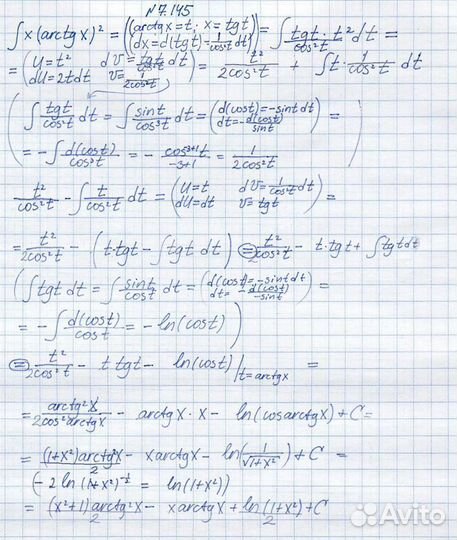 №7.145
∫x(arctgx)² = ((arctgx=t; x=tgt) (dx=d(tgt)=1/cos²t dt)) = ∫tgt/cos²t · t² dt =
= (U=t² dV=tgt/cos²t dt; dU=2tdt V=1/2cos²t) = t²/2cos²t + ∫t·1/cos²t dt
(∫tgt/cos²t dt = ∫sint/cos³t dt = (d(cost)=-sint dt; dt=-d(cost)/sint) =
= -∫d(cost)/cos³t = -cos⁻³⁺¹t/-3+1 = 1/2cos²t)
t²/cos²t - ∫t/cos²t dt = (U=t dV=1/cos²t dt; dU=dt V=tgt) =
= t²/2cos²t - (t·tgt - ∫tgt dt) = t²/2cos²t - t·tgt + ∫tgt dt
(∫tgt dt = ∫sint/cost dt = (d(cost)=-sint dt; dt=d(cost)/-sint) =
= -∫d(cost)/cost = -ln(cost))
= t²/2cos²t - t tgt - ln(cost)|t=arctgx =
= arctg²x/2cos²arctgx - arctgx·x - ln(cosarctgx)+C=
= (1+x²)arctg²x/2 - xarctgx - ln(1/√1+x²)+C =
(-2 ln(1+x²)^-1/2 = ln(1+x²))
= (x²+1)arctg²x/2 - xarctgx + ln(1+x²)/2 + C
Avito